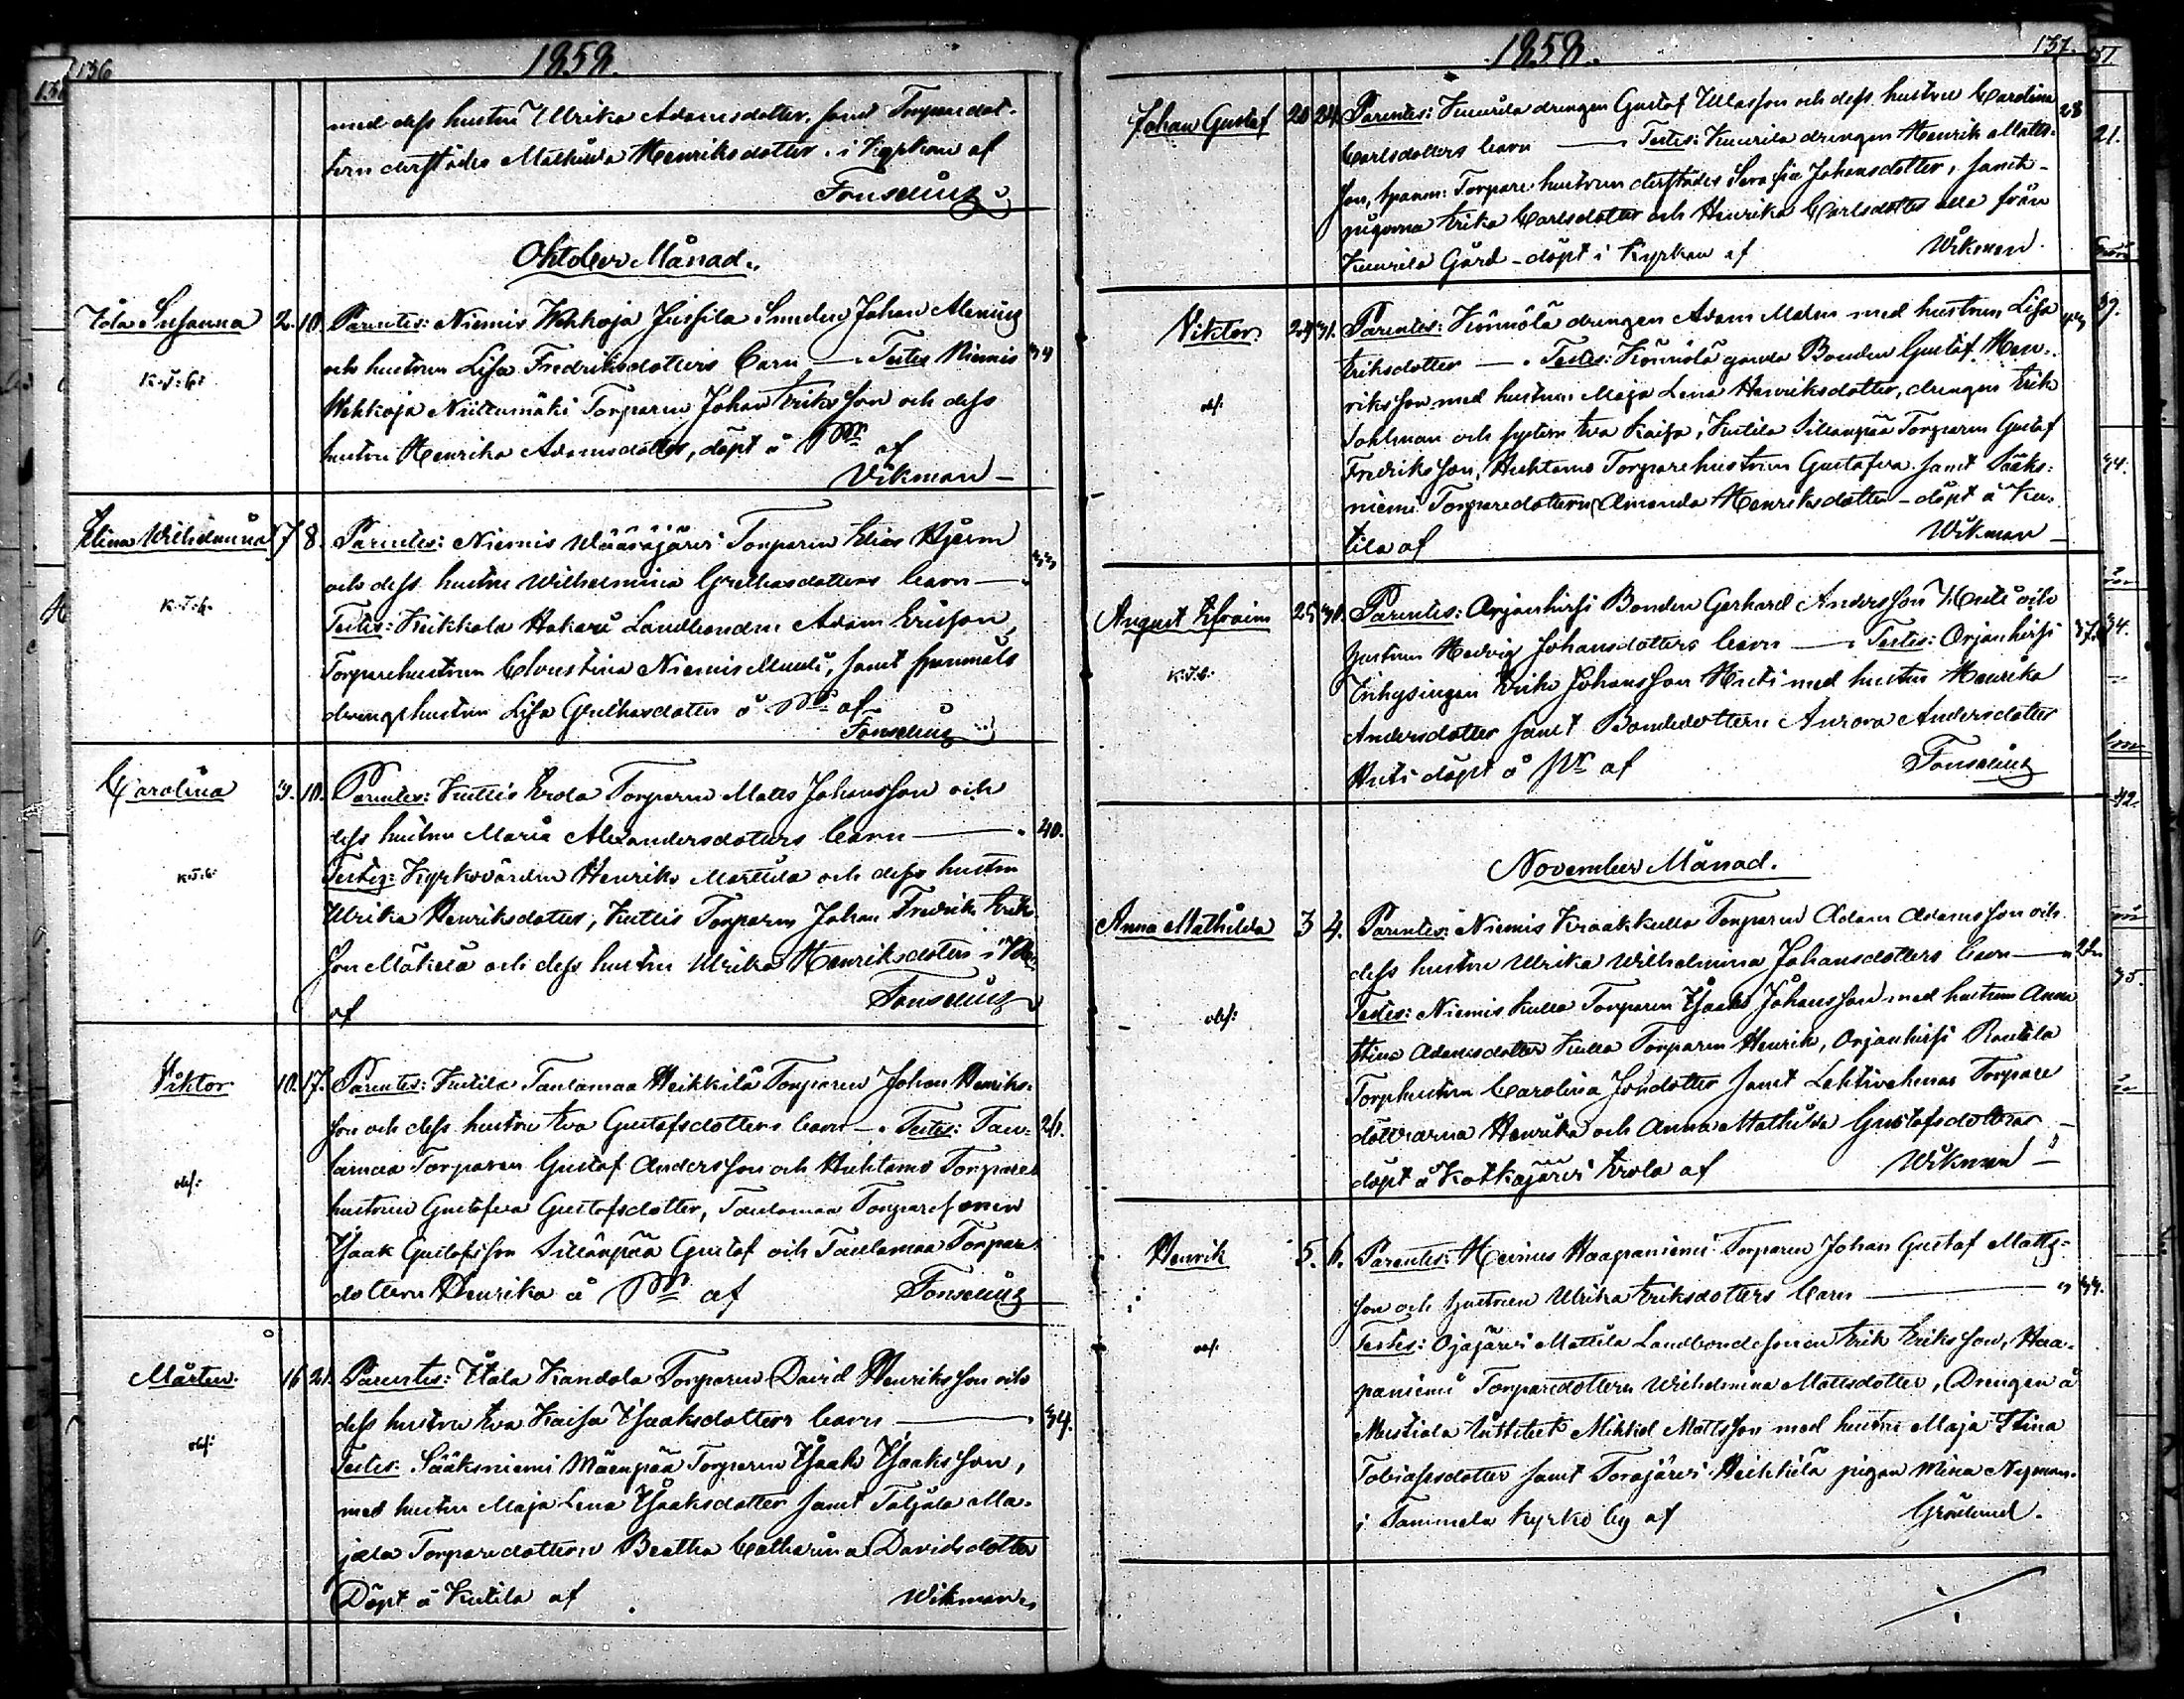 136
1858.
med dess hustru Ulrika Adamsdotter, samt Torparedot-
tern derstädes Mathilda Henriksdotter. i Kyrkan af
Fonselius
Oktober Månad.
Ida Susanna 2. 10. Parentes: Niemis Wehkoja Jussila Smeden Johan Alenius
och hustrun Lisa Fredriksdotters barn —. Testes Niemis 34
K.J.6:
Wehkoja Niittumäki Torparen Johan Eriksson och dess
hustru Henrika Adamsdotter, döpt å Pr af
Wikman —
Elina Wilhelmina 7 8. Parentes: Niemis Wääräjärvi Torparen Elias Hjerm
och dess hustru Wilhelmina Grelksdotters barn — 33
K.J.6.
Testes: Kuikkala Hakari Landbonden Adam Ericson,
Torparehustrun Christina Niemis Muuli, samt
drengshustrun Lisa Grelksdotter å Pr af
Fonselius
Carolina 9. 10. Parentes: Kutlis Erola Torparen Matts Johansson och
dess hustru Maria Alexandersdotters barn — 40.
K.J.6.
Testes: Kyrkovärden Henrik Marttila och dess hustru
Ulrika Henriksdotter, Kutlis Torparen Johan Fredrik Erik-
son Mäkelä och dess hustru Ulrika Henriksdotter i
af Fonselius
Viktor 10. 17. Parentes: Kutila Taulamaa Heikkilä Torparen Johan Henriks-
son och dess hustru Eva Gustafsdotters barn —. Testes: Tau- 26.
obs:
lamaa Torparen Gustaf Andersson och Huhtamo Torpare
hustrun Gustafva Gustafsdotter, Taulamaa Torparesonen
Isaak Gustafsson Sillänpää Gustaf och Taulamaa Torpare
dottern Henrika å Pr af Fonselius
Mårten. 16 21. Parentes: Itala Kandola Torparen David Henriksson och
dess hustru Eva Kaisa Isaaksdotters barn — 34.
obs:
Testes: Sääksniemi Mäenpää Torparen Isaak Isaaksson,
med hustru Maja Lena Isaaksdotter samt Taljala Ma-
jala Torparedottern Beatha Catharina Davidsdotter
Döpt å Kutila af Wikman
1858. 137.
Johan Gustaf 20 24. Parentes: Kuurila drengen Gustaf Ulasson och dess hustru Carolina 28
Carlsdotters barn — Testes: Kuurila drengen Henrik Matts-
son, Torpare hustrun derstädes Serafia Johansdotter, samt
pigorna Erika Carlsdotter och Henrika Carlsdotter alla från
Kuurila Gård – döpt i Kyrkan af Wikman
Viktor. 24 31. Parentes: Könnölä drengen Adam Malm med hustrun Lisa
Eriksdotter —. Testes: Könnölä gamla Bonden Gustaf Hen-
obs:
riksson med hustrun Maja Lena Henriksdotter, drengen Erik
Tohlman och systern Eva Kaisa, Kutila Sillanpää Torparen Gustaf
Fredriksson, Huhtamo Torparehustrun Gustafva samt Sääks-
niemi Torparedottern Amanda Henriksdotter – döpt å Ku-
tila af Wikman
August Efraim 25 31. Parentes: Orjanhirsi Bonden Gerhard Andersson Huti och
hustrun Hedvig Johansdotters barn — Testes: Orjanhirsi 37.
K.J.6.
Inhysingen Erik Johansson Huti med hustru Henrika
Andersdotter samt Bondedottern Aurora Andersdotter
Huti döpt å Pr af Fonselius
November Månad.
Anna Mathilda 3 4. Parentes: Niemis Kraakkulla Torparen Adam Adamsson och
dess hustru Ulrika Wilhelmina Johansdotters barn — 22
obs:
Testes: Niemis Kulla Torparen Isaak Johansson med hustrun Anna
Stina Adamsdotter Kulla Torparen Henrik, Orjanhirsi Rantala
Torphustrun Carolina Jondotter samt Lehtivahmas Torpare
döttrarna Henrika och Anna Mathilda Gustafsdöttrar —
döpt å Kotkajärvi Erola af Wikman —
Henrik 5. 6. Parentes: Heinus Haapaniemi Torparen Johan Gustaf Matts-
son och hustrun Ulrika Eriksdotters barn — 34.
obs:
Testes: Ojajärvi Mattila Landbondesonen Erik Eriksson, Haa-
paniemi Torparedottern Wilhelmina Mattsdotter, Drengen å
Mustiala Institut Mikkel Mattsson med hustru Maja Stina
Tobiasdotter samt Torajärvi Heikkilä pigan Mina Nyman.
i Tammela kyrko by af Grönlund.